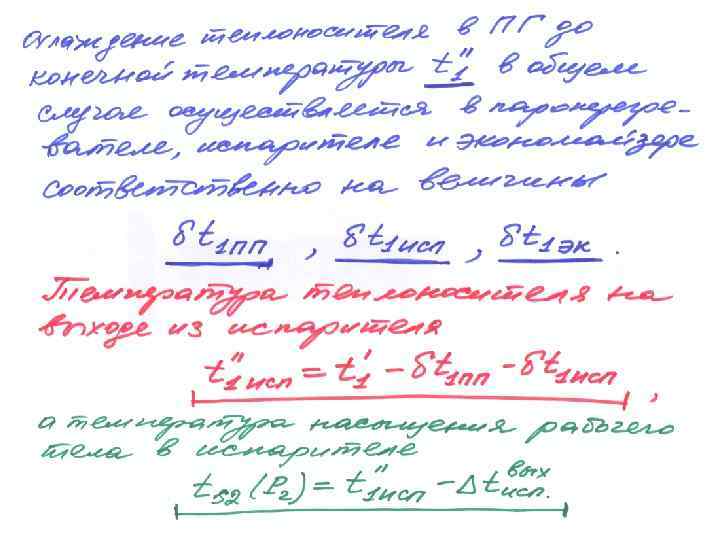 охлаждение теплоносителя в ПГ до
конечной температуры t₁″ в общем
случае осуществляется в пароперегре-
вателе, испарителе и экономайзере
соответственно на величины
δt₁пп , δt₁исп , δt₁эк .
Температура теплоносителя на
выходе из испарителя
t″₁исп = t₁′ – δt₁пп – δt₁исп ,
а температура насыщения рабочего
тела в испарителе
tₛ₂ (P₂) = t″₁исп – Δtисп.вых